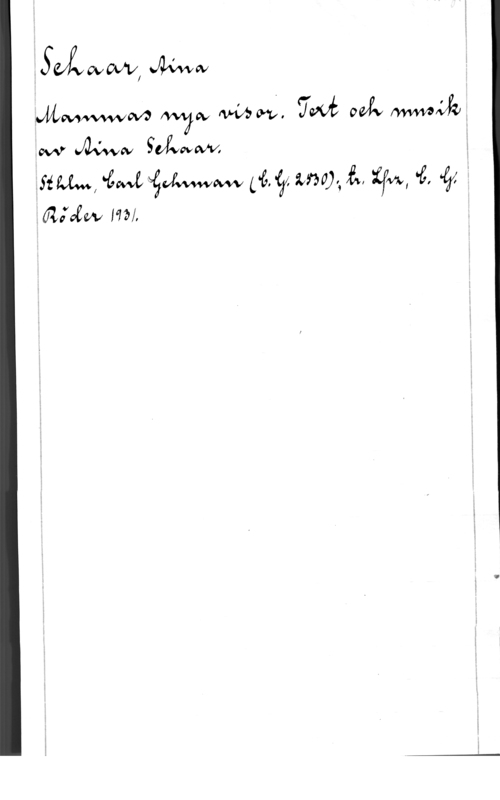 Schaar, Aina
Mammas nya visor. Text och musik
av Aina Schaar.
Sthlm, Carl Gehrman (C. G. 2530); tr. Lpz, C. G.
Röder 1931.